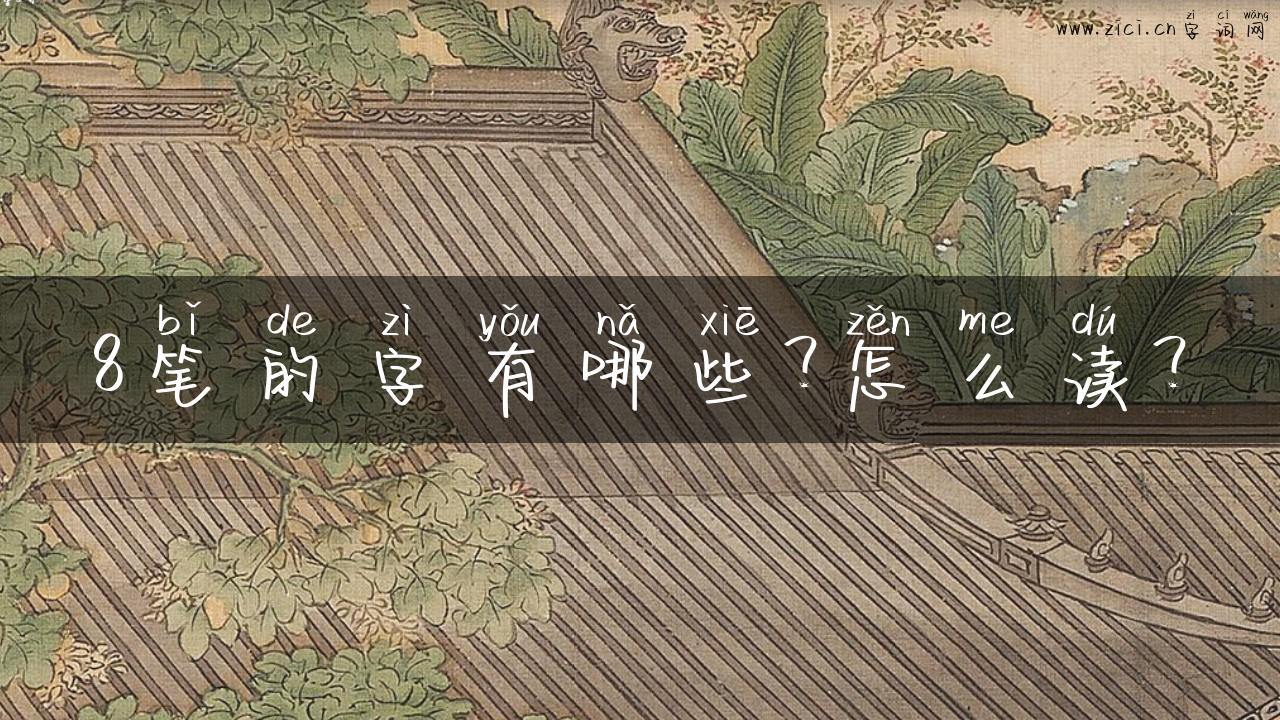 zì cí wǎng
www.zici.cn 字词网
bǐ de zì yǒu nǎ xiē zěn me dú
8笔的字有哪些?怎么读?